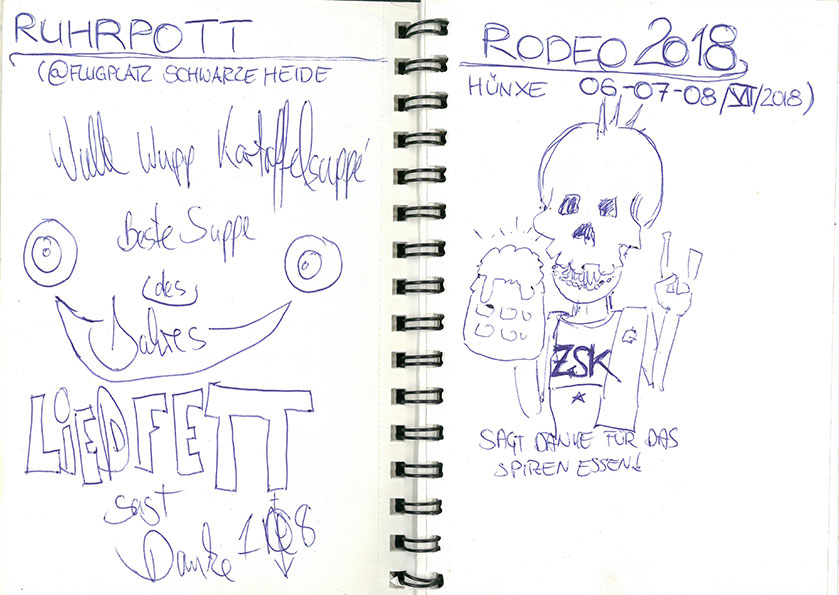 RUHRPOTT
(@FLUGPLATZ SCHWARZE HEIDE
Wulle Wupp Kartoffelsuppe
Beste Suppe
des
Jahres
LIEDFETT
sagt
Danke 108
RODEO 2018
HÜNXE 06-07-08/VII/2018)
ZSK
SAGT DANKE FÜR DAS
SPIREN ESSEN!